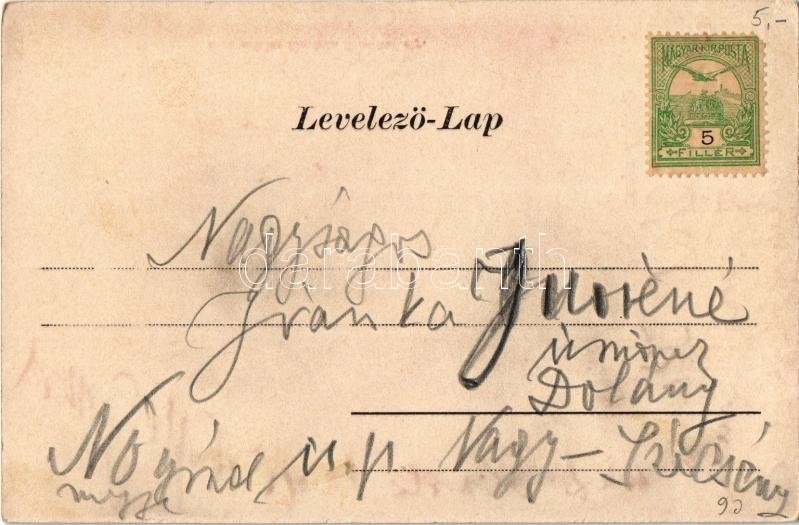 5,-
MAGYAR KIR. POSTA
5
FILLÉR
Levelező-Lap
Nagyságos
Ivánka
úrnőnek
Dolány
Nógrád u.p. Nagy-Szécsény
megye
90
darabanth